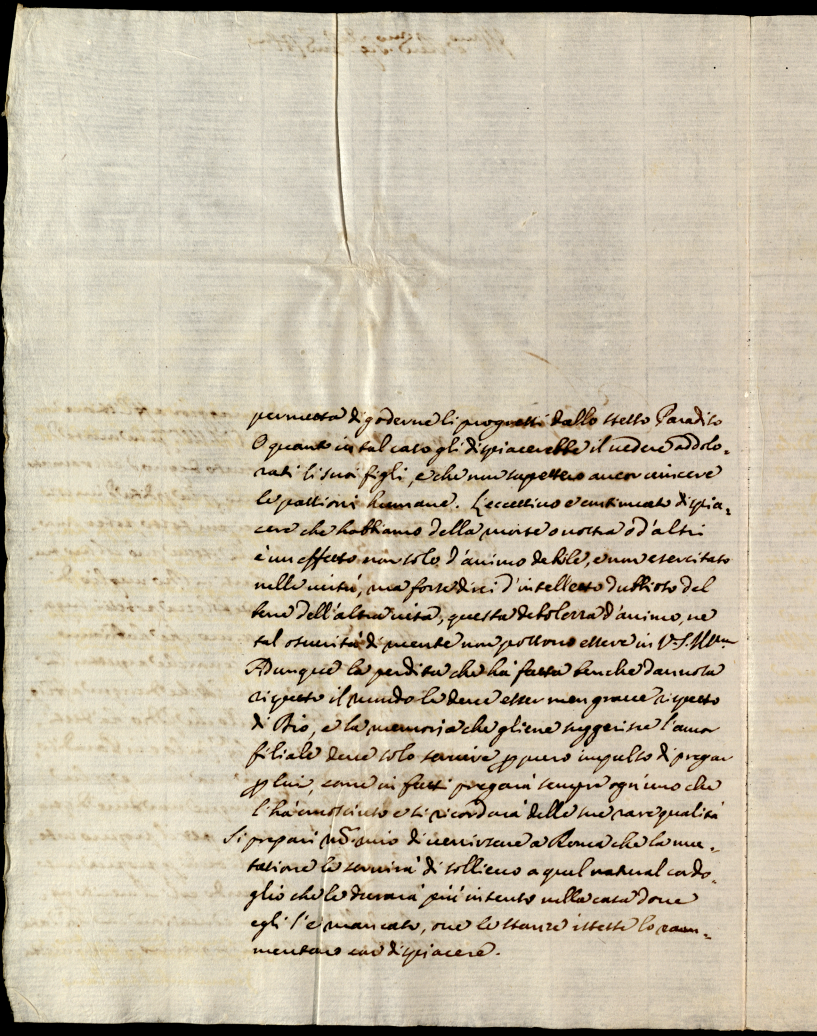 permetta di goderne li progressi dallo stesso Paradiso
O quanto in tal caso gli dispiacerebbe il vedere addolo-
rati li suoi figli, e che non sapessero ancor vincere
le passioni humane. L'eccessivo e continuato dispia-
cere che habbiamo della morte o nostra ò d'altri
è un effetto non solo d'animo debile, e non esercitato
nelle virtù, ma forse direi d'intelletto dubbioso del
bene dell'altra vita, questa debolezza d'animo, ne
tal oscurità di mente non possono essere in V.S. Ill.ma
Adunque la perdita che ha fatta benche dannosa
rispetto il mondo le deve esser men grave rispetto
di Dio, e la memoria che gliene suggerisce l'amor
filiale deve solo servire p puro impulso di pregar
p lui, come in fatti pregarà sempre ogn'uno che
l'hà conosciuto e si ricordarà delle sue rare qualità
Si prepari mio di venirsene a Roma che la mu-
tatione le servirà di sollievo a quel natural cordo-
glio che le durarà più intento nella casa dove
egli l'è mancato, ove le stanze istesse lo ram-
mentano con dispiacere.